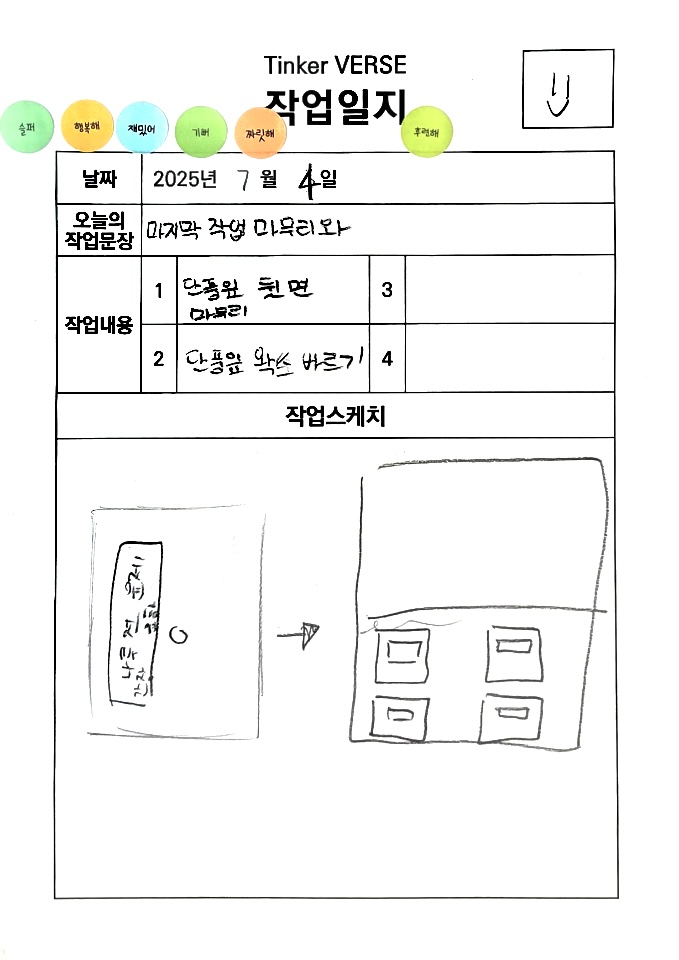 Tinker VERSE
작업일지
슬퍼
행복해
재밌어
기뻐
짜릿해
후련해
날짜
2025년 7월 4일
오늘의
작업문장
마지막 작업 마무리와
작업내용
1
단풍잎 뒷면
마무리
2
단풍잎 왁스 바르기
3
4
작업스케치